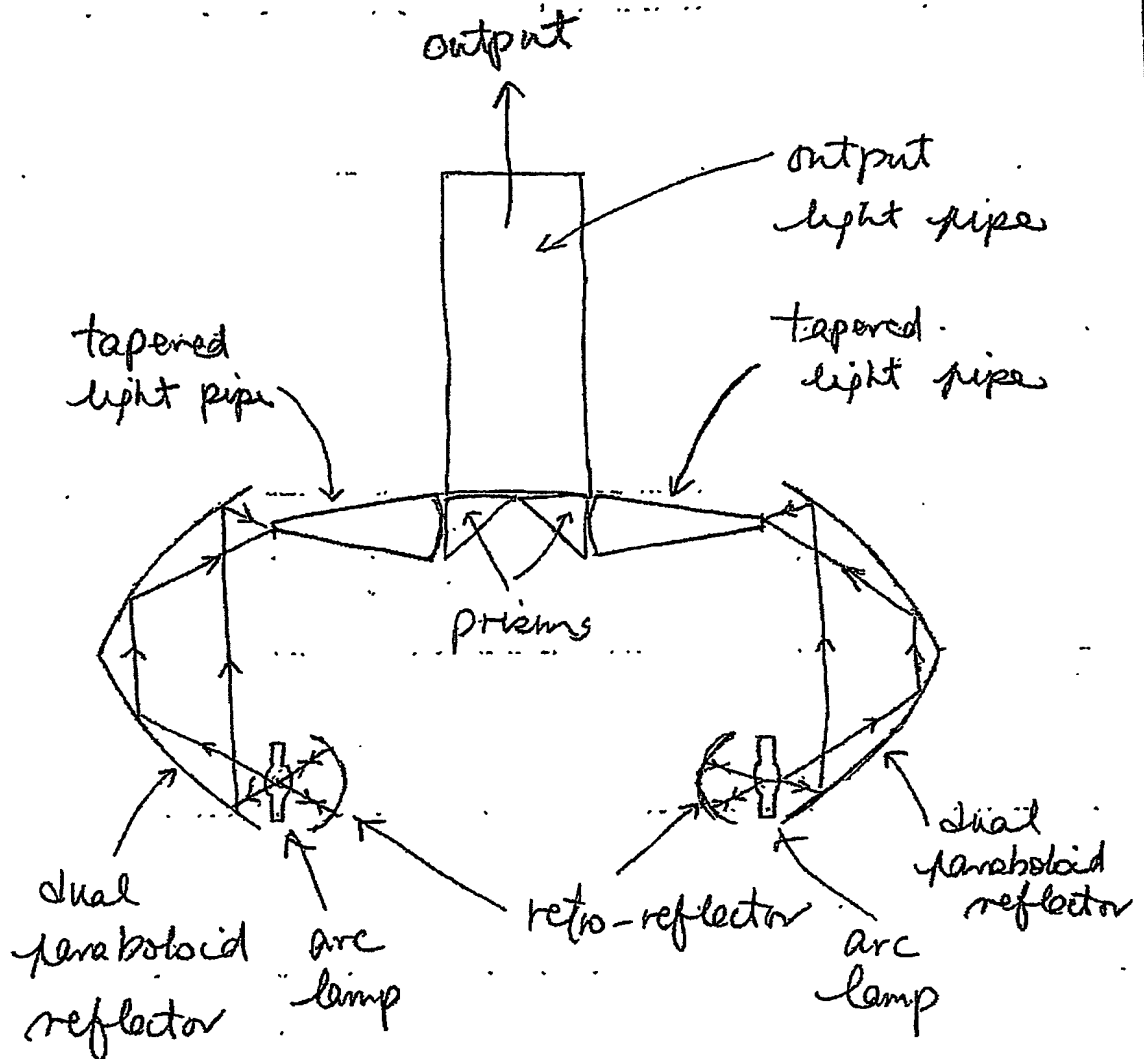 output
output
light pipe
tapered
light pipe
tapered
light pipe
prisms
dual
paraboloid
reflector
arc
lamp
retro-reflector
arc
lamp
dual
paraboloid
reflector